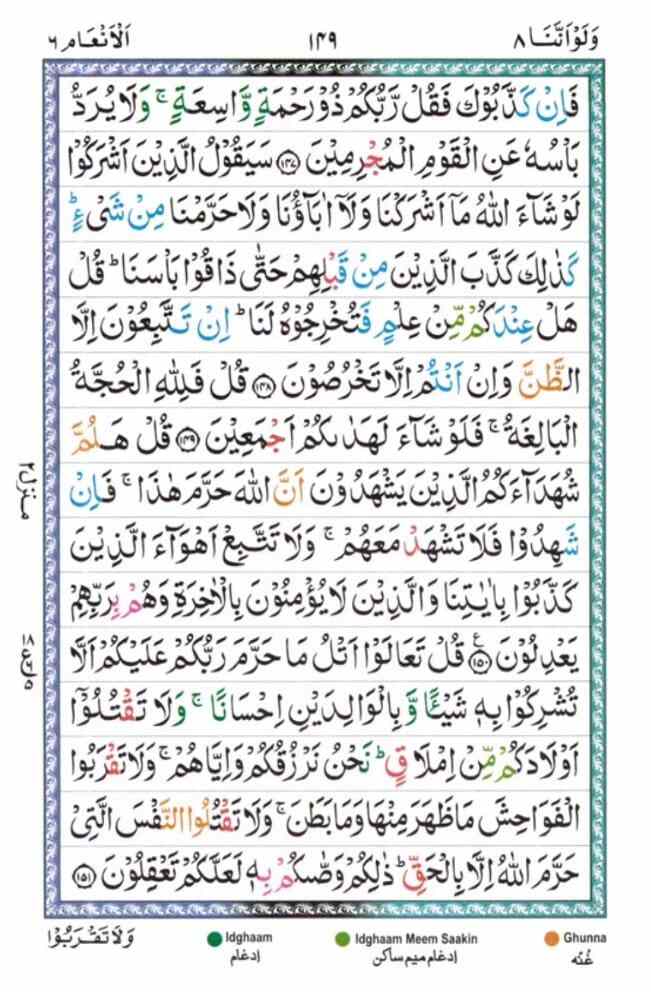 وَلَوْ اَنَّنَا ۸
۱۴۹
اَلْاَنْعَام ۶
فَاِنْ كَذَّبُوْكَ فَقُلْ رَّبُّكُمْ ذُوْ رَحْمَةٍ وَّاسِعَةٍ ۚ وَلَا يُرَدُّ
بَاْسُهٗ عَنِ الْقَوْمِ الْمُجْرِمِيْنَ ﴿۱۴۷﴾ سَيَقُوْلُ الَّذِيْنَ اَشْرَكُوْا
لَوْ شَآءَ اللّٰهُ مَاۤ اَشْرَكْنَا وَلَاۤ اٰبَآؤُنَا وَلَا حَرَّمْنَا مِنْ شَیْءٍ ؕ
كَذٰلِكَ كَذَّبَ الَّذِيْنَ مِنْ قَبْلِهِمْ حَتّٰى ذَاقُوْا بَاْسَنَا ؕ قُلْ
هَلْ عِنْدَكُمْ مِّنْ عِلْمٍ فَتُخْرِجُوْهُ لَنَا ؕ اِنْ تَتَّبِعُوْنَ اِلَّا
الظَّنَّ وَاِنْ اَنْتُمْ اِلَّا تَخْرُصُوْنَ ﴿۱۴۸﴾ قُلْ فَلِلّٰهِ الْحُجَّةُ
الْبَالِغَةُ ۚ فَلَوْ شَآءَ لَهَدٰىكُمْ اَجْمَعِيْنَ ﴿۱۴۹﴾ قُلْ هَلُمَّ
شُهَدَآءَكُمُ الَّذِيْنَ يَشْهَدُوْنَ اَنَّ اللّٰهَ حَرَّمَ هٰذَا ۚ فَاِنْ
شَهِدُوْا فَلَا تَشْهَدْ مَعَهُمْ ۚ وَلَا تَتَّبِعْ اَهْوَآءَ الَّذِيْنَ
كَذَّبُوْا بِاٰيٰتِنَا وَالَّذِيْنَ لَا يُؤْمِنُوْنَ بِالْاٰخِرَةِ وَهُمْ بِرَبِّهِمْ
يَعْدِلُوْنَ ﴿۱۵۰﴾ ع قُلْ تَعَالَوْا اَتْلُ مَا حَرَّمَ رَبُّكُمْ عَلَيْكُمْ اَلَّا
تُشْرِكُوْا بِهٖ شَيْـًٔا وَّ بِالْوَالِدَيْنِ اِحْسَانًا ۚ وَلَا تَقْتُلُوْۤا
اَوْلَادَكُمْ مِّنْ اِمْلَاقٍ ؕ نَحْنُ نَرْزُقُكُمْ وَاِيَّاهُمْ ۚ وَلَا تَقْرَبُوا
الْفَوَاحِشَ مَا ظَهَرَ مِنْهَا وَمَا بَطَنَ ۚ وَلَا تَقْتُلُوا النَّفْسَ الَّتِیْ
حَرَّمَ اللّٰهُ اِلَّا بِالْحَقِّ ؕ ذٰلِكُمْ وَصّٰىكُمْ بِهٖ لَعَلَّكُمْ تَعْقِلُوْنَ ﴿۱۵۱﴾
منزل ۲
وَلَا تَقْرَبُوْا
Idghaam
ادغام
Idghaam Meem Saakin
ادغام میم ساکن
Ghunna
غُنّه